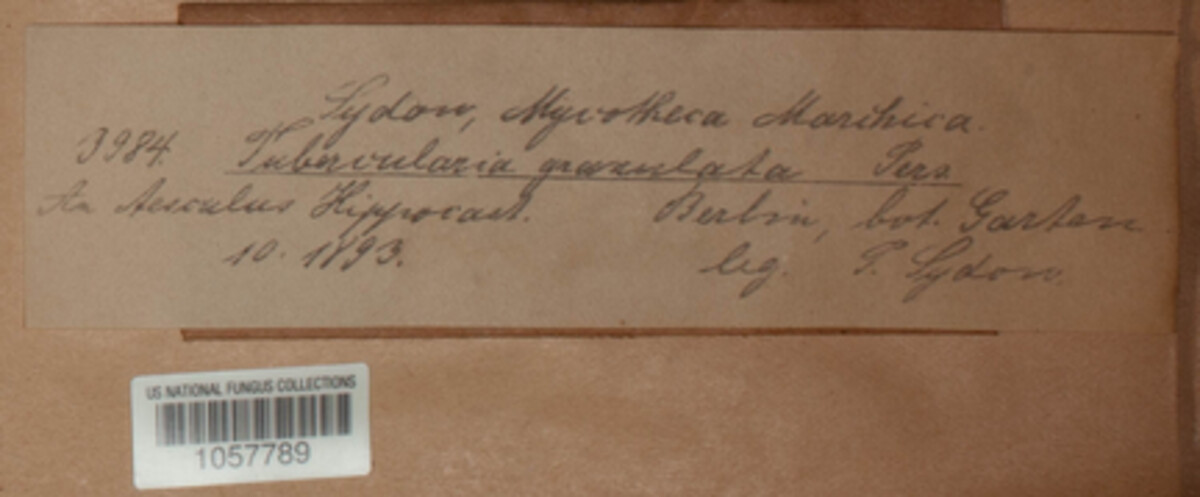 Sydow, Mycotheca Marchica.
3984. Tubercularia granulata Pers.
An Aesculus Hippocast. Berlin, bot. Garten.
10. 1893. leg. P. Sydow.
US NATIONAL FUNGUS COLLECTIONS
1057789